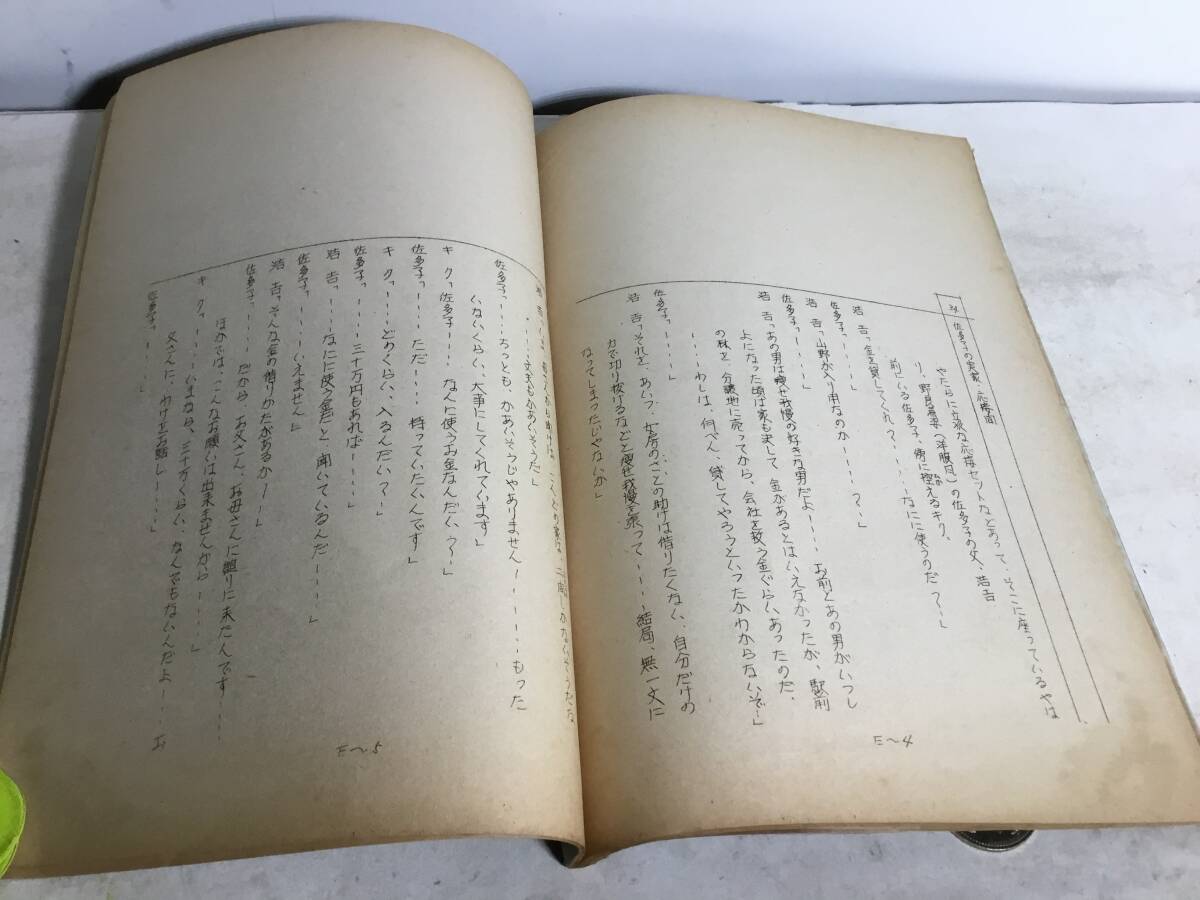 34 佐多子の実家・応接間
やたらに立派な応接セットなどあって、そこに座っているやは
り、野良着ふう(洋服)の佐多子の父、浩吉
前にいる佐多子、傍に控えるキク、
浩 吉「金を貸してくれ?、……なにに使うのだ?…」
佐多子「……」
浩 吉「山野が入り用なのか……?…」
佐多子「……」
浩 吉「あの男は痩せ我慢の好きな男だよ……お前とあの男がいっし
よになった頃は家も決して、金があるとはいえなかったが、駅前
の秋を、分譲地に売ってから、会社を救う金ぐらい、あったのだ、
……わしは、何べん、貸してやろうといったかわからないぞ…」
佐多子「……」
浩 吉「それを、あいつ、女房のさとの助けは借りたくない、自分だけの
力で切り抜けるなどと痩せ我慢を張って……結局、無一文に
なってしまったじゃないか」
E〜4
……丈夫もかあいそうだ」
佐多子「……ちっとも、かあいそうじゃありません……もった
いないくらい、大事にしてくれています」
キ ク「佐多子……なんに使うお金なんだい?…」
佐多子「……ただ……持っていたいんです」
キ ク「……どのくらい、入るんだい?」
佐多子「……三十万円もあれば……」
浩 吉「……なにに使う金だと、聞いているんだ……」
佐多子「……いえません」
浩 吉「そんな金の借りかたがあるか……」
佐多子「……だから、お父さん、お母さんに頼りに来たんです……
ほかでは、こんなお願いは出来ませんから……」
キ ク「……いまなら、三十万くらい、なんでもないんだよ……お
父さんに、わけをお話し……」
佐多子「……」
E〜5